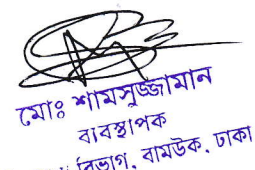 মোঃ শামসুজ্জামান
ব্যবস্থাপক
বিভাগ, বামউক, ঢাকা